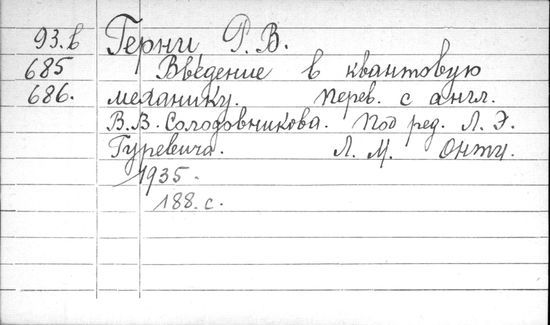 93.в Герни Р. В.
685 Введение в квантовую
686. механику. Перев. с англ.
В.В. Солодовникова. Под ред. Л. Э.
Гуревича. Л. М. ОНТИ.
1935.
188. с.